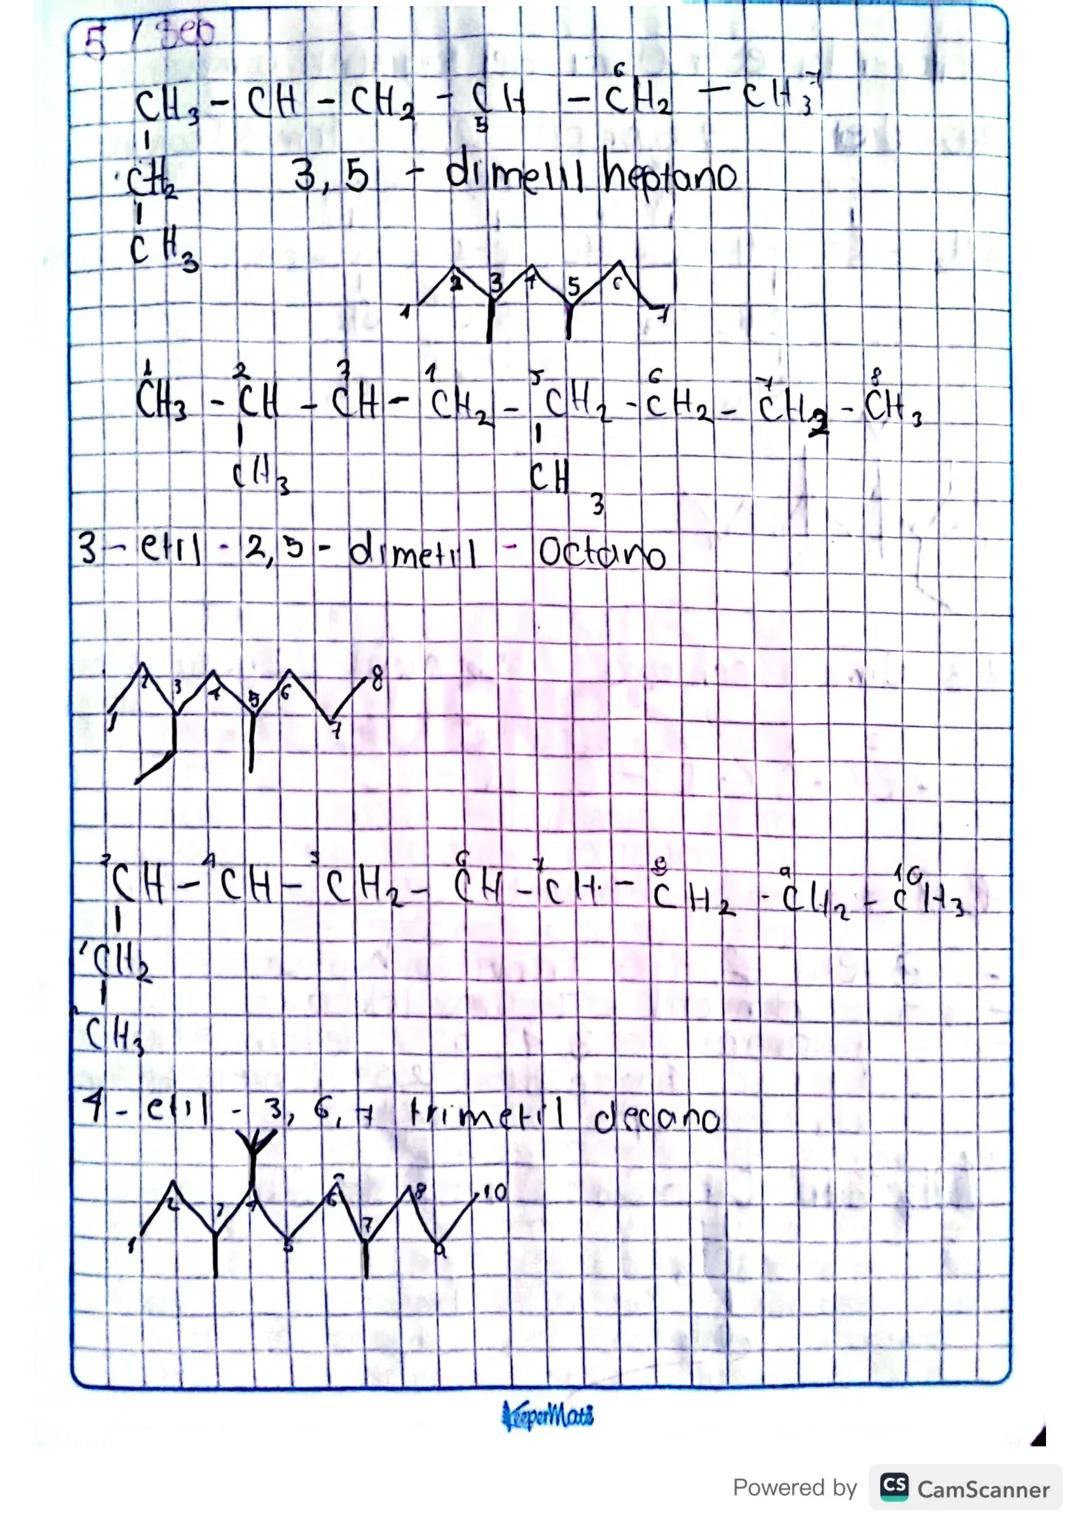 5 / Sep
CH3 - CH - CH2 - CH - CH2 - CH3
5 6 7
CH2 3,5 - dimetil heptano
CH3
1 2 3 4 5 6 7
1 2 3 1 5 6 7 8
CH3 - CH - CH - CH2 - CH2 - CH2 - CH2 - CH3
CH3 CH3
3 - etil - 2,5 - dimetil - Octano
1 2 3 4 5 6 7 8
3 4 5 6 7 8 9 10
CH - CH - CH2 - CH - CH - CH2 - CH2 - CH3
CH2
CH3
4 - etil - 3, 6, 7 trimetil decano
1 2 3 4 5 6 7 8 9 10
KeeperMate
Powered by CS CamScanner